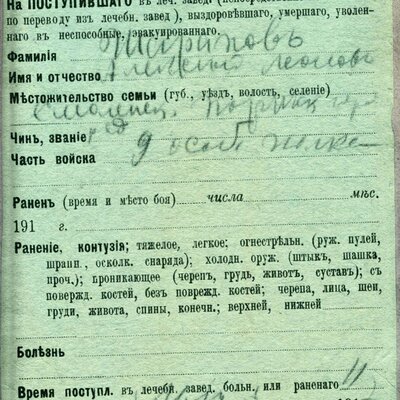 На ПОСТУПИВШАГО въ леч. завед. (непосредств
по переводу изъ лечебн. завед), выздоровѣвшаго, умершаго, уволен-
наго въ неспособные, эвакуированнаго.
Фамилія Жариковъ
Имя и отчество
Мѣстожительство семьи (губ., уѣздъ, волость, селеніе)
Смоленск.
Чинъ, званіе ряд
Часть войска 9 особ полка
Раненъ (время и мѣсто боя) числа мѣс.
191 г.
Раненіе, контузія; тяжелое, легкое; огнестрѣльн. (руж. пулей,
шрапн., осколк. снаряда); холодн. оруж. (штыкъ, шашка,
проч.); проникающее (черепъ, грудь, животъ, суставъ); съ
поврежд. костей, безъ поврежд. костей; черепа, лица, шеи,
груди, живота, спины, конечн.; верхней, нижней
Болѣзнь
Время поступл. въ лечебн. завед. больн. или раненаго 11